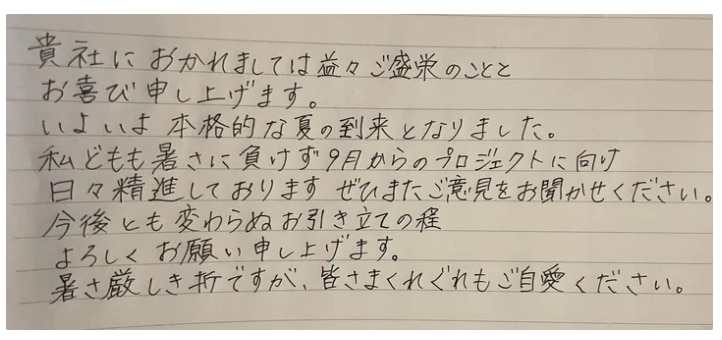 貴社におかれましては益々ご盛栄のことと
お喜び申し上げます。
いよいよ本格的な夏の到来となりました。
私どもも暑さに負けず9月からのプロジェクトに向け
日々精進しております ぜひまたご意見をお聞かせください。
今後とも変わらぬお引き立ての程
よろしくお願い申し上げます。
暑さ厳しき折ですが、皆さまくれぐれもご自愛ください。